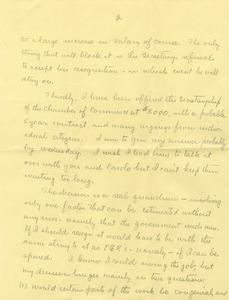 2.
at a large increase in salary of course. The only
thing that will block it is the Secretary's refusal
to accept his resignation - in which event he will
stay on.
Thirdly, I have been offered the Secretaryship
of the Chamber of Commerce at $8000, with a probable
5 year contract, and many urgings from
ideal citizens. I aim to give my answer probably
by Wednesday. I wish I had time to talk it
over with you and Carol but I can't keep them
waiting too long.
The decision is a real quandrum - involving
only one factor that can be estimated without
any error - namely that the government
If I should resign it would have to be with the
same string to it as - namely - if I can be
spared. I know I could swing the job; but
my decision hinges mainly on two questions:
(1) would certain parts of the work be congenial and